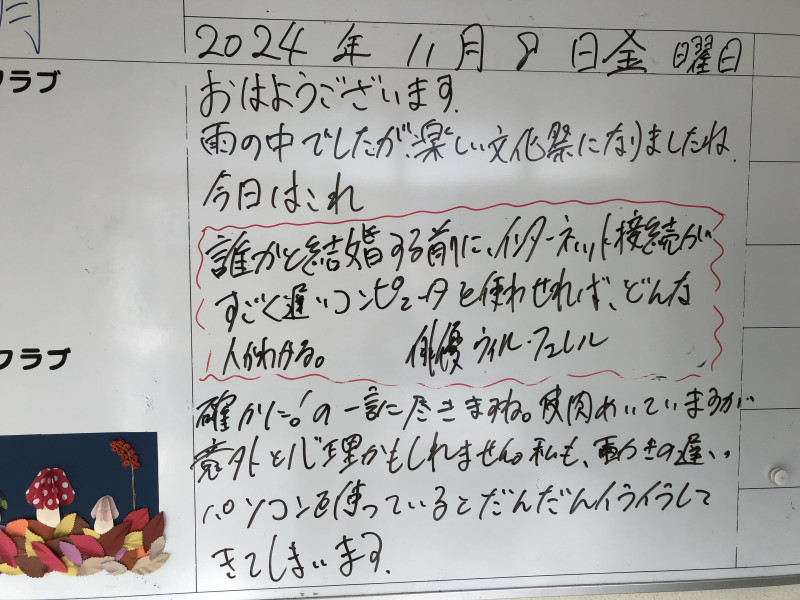 月
クラブ
2024年11月8日金曜日
おはようございます.
雨の中でしたが、楽しい文化祭になりましたね.
今日はこれ
誰かと結婚する前に、インターネット接続が
すごく遅いコンピュータを使わせれば、どんな
人かわかる。 俳優 ウィル・フェレル
クラブ
確かに!の一言に尽きますね。皮肉めいていますが
意外と心理かもしれません。私も、動きの遅い
パソコンを使っているとだんだんイライラして
きてしまいます.